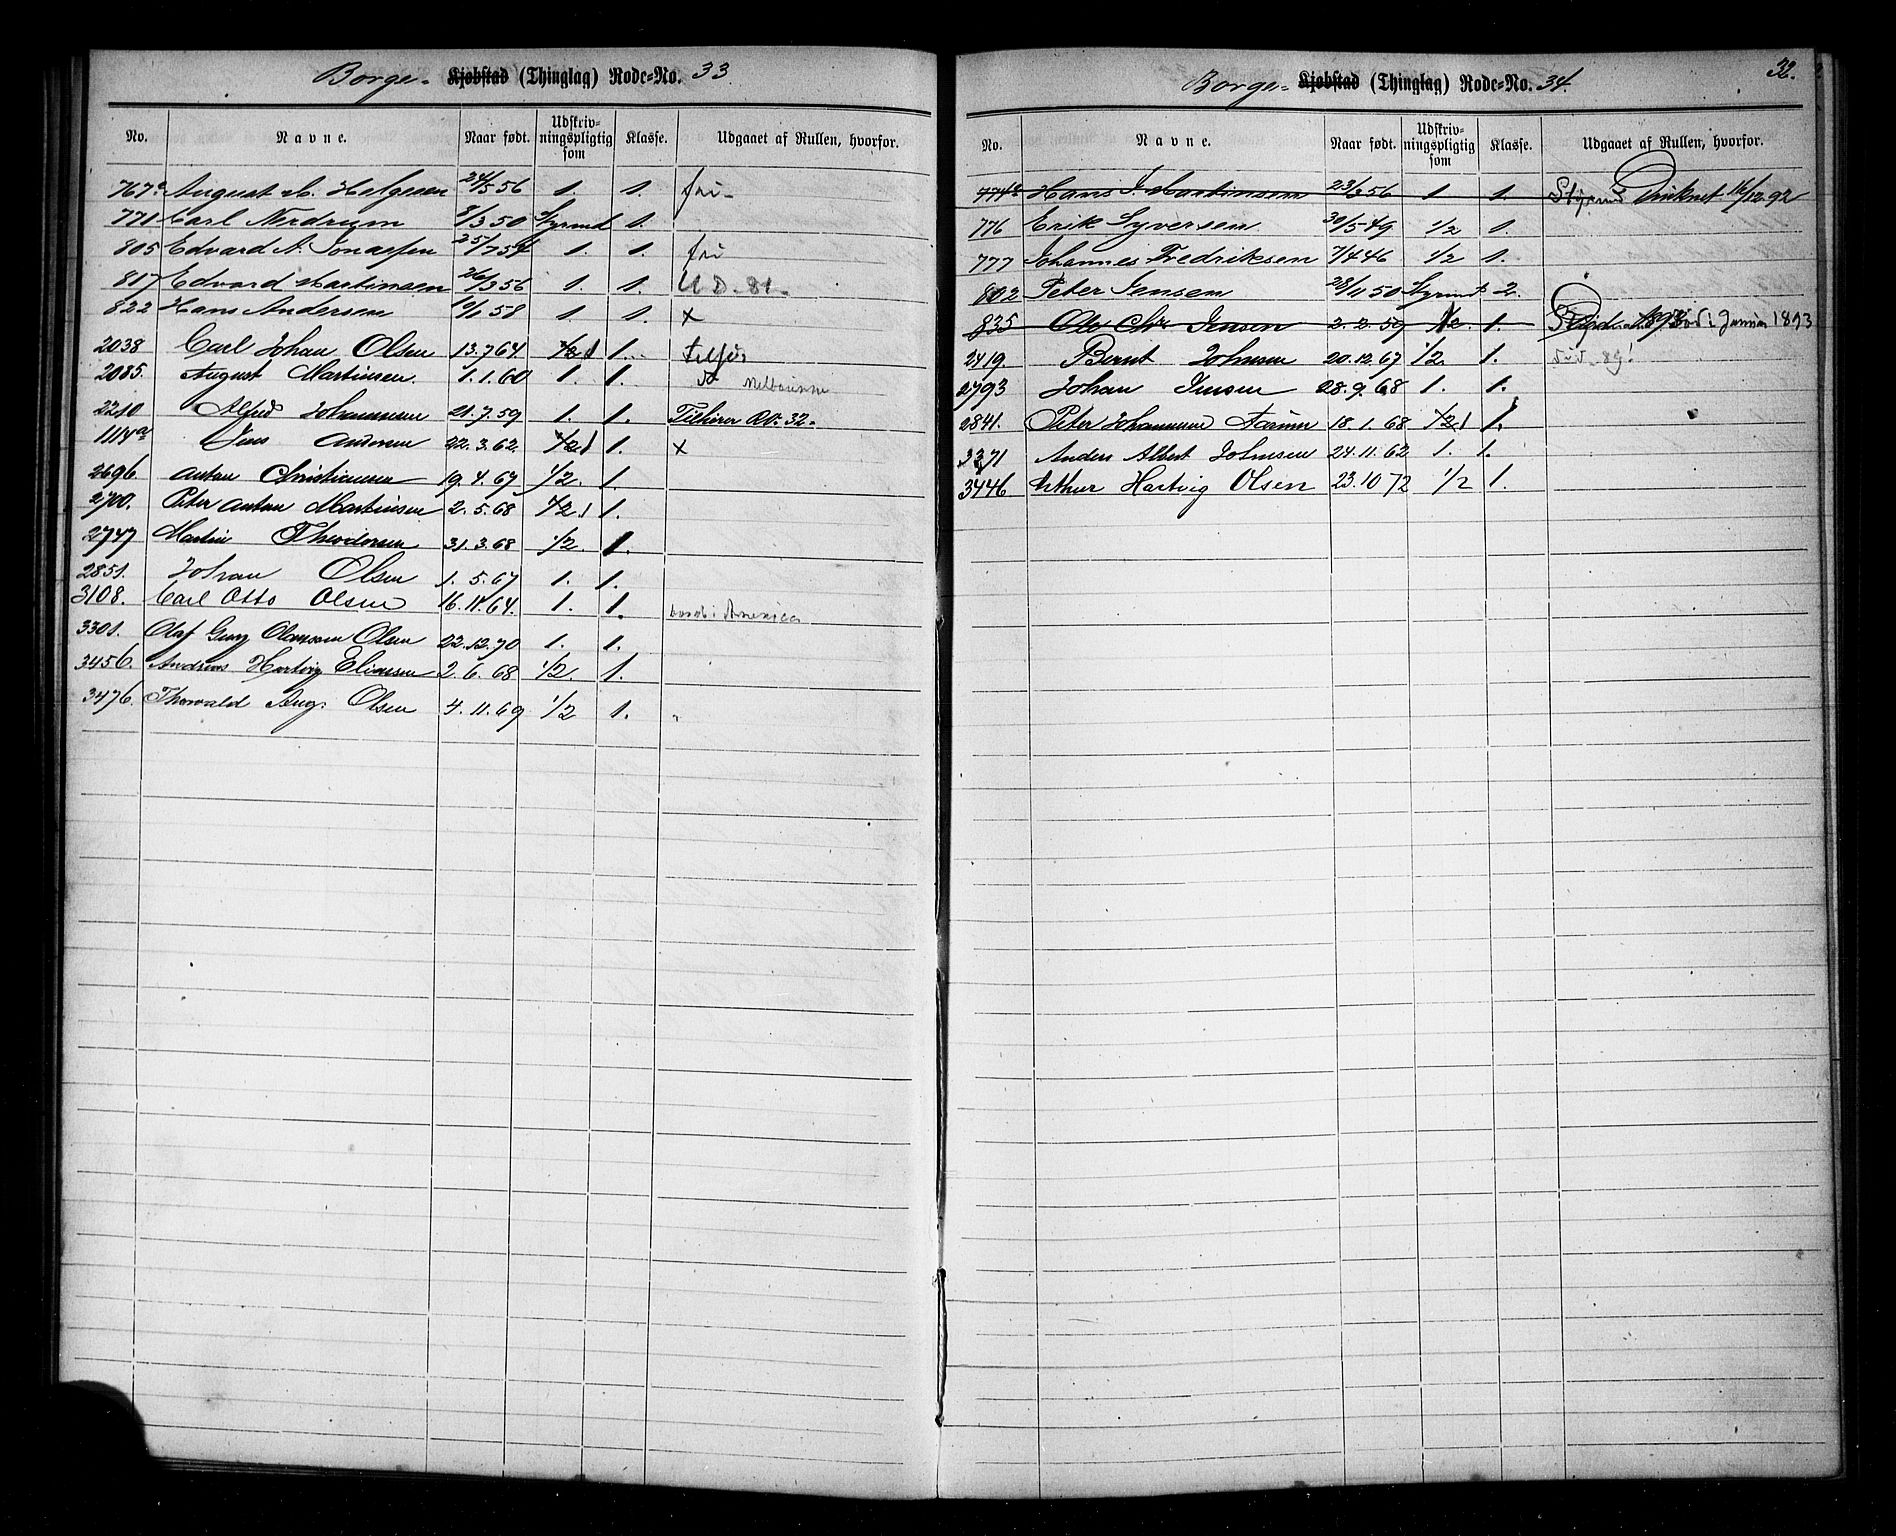 Borge. Kjøbstad (Thinglag) Rode=No. 33
No. Navne. Naar født. Udskriv-ningspligtig som Klasse. Udgaaet af Rullen, hvorfor.
767 a August M. Helgesen 24/5 56 1. 1. fri
771 Carl Nerdrum 8/3 50 Styrmd 1.
805 Edvard A. Jonassen 25/7 54 1. 1. fri
817 Edvard Martinsen 26/3 56 1. 1. U D. 81.
822 Hans Andersen 10/1 58 1. 1. x
2038 Carl Johan Olsen 13.7 64 1/2 1 1.
2085. August Martinsen. 1.1.60 1. 1. Melbourne
2210 Alfred Johannesen 21.7.59 1. 1. Tilhører R.No. 32.
1114 a Jens Andersen 22.3.62. 1/2 1 1. x
2696 Anton Christiansen 19.4.67 1/2. 1.
2700. Peter Anton Martinsen 2.5.68 1/2 1 1.
2747 Martin Theodorsen 31.3.68 1/2. 1.
2851. Johan Olsen 1.5.67 1. 1.
3108. Carl Otto Olsen 16.11.64. 1. 1. bosat i America
3301. Olaf Georg Clausen Olsen 22.12.70 1. 1.
3456. Andreas Hartvig Eliassen 2.6.68 1/2. 1.
3476. Thorvald Aug. Olsen 4.11.69 1/2 1.
32.
Borge. Kjøbstad (Thinglag) Rode=No. 34.
No. Navne. Naar født. Udskriv-ningspligtig som Klasse. Udgaaet af Rullen, hvorfor.
774 a Hans J. Martinsen 23/3 56 1 1. Druknet 16/12 92
776 Erik Syversen 30/5 49 1/2 1.
777 Johannes Fredriksen 7/4 46 1/2 1.
802 Peter Jensen 28/11 50 Styrmd 2.
835 Ole Chr. Jensen 2.2.59 1/2. 1. Død i Januar 1893
2419. Bernt Johnsen 20.12.67 1/2 1.
2793 Johan Jensen 28.9.68 1. 1.
2841. Peter Johannesen Aarum 18.1.68 1/2 1 1.
3371 Anders Albert Johnsen 24.11.62 1. 1.
3446 Arthur Hartvig Olsen 23.10 72 1/2 1.